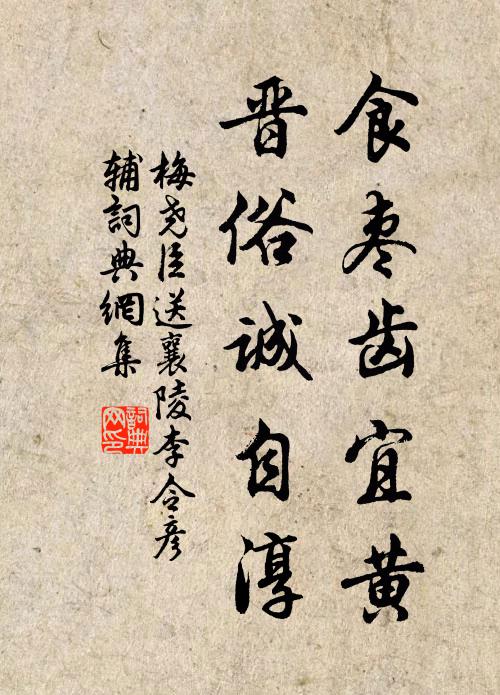 食枣齿宜黄
晋俗诚自淳
梅尧臣送襄陵李令彦
辅词典網集
詞典
网印